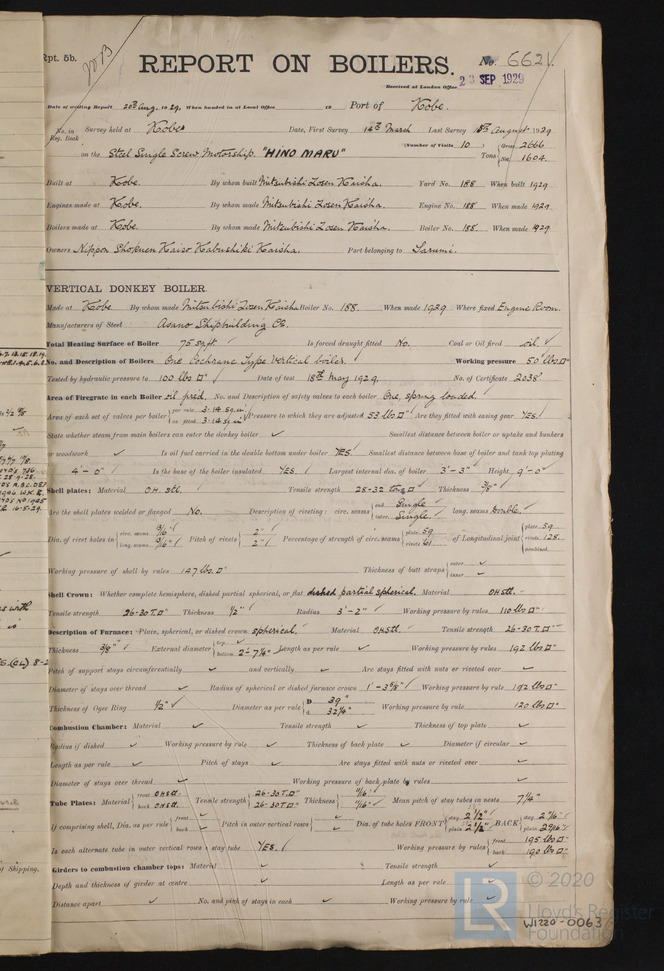 Rpt. 5b.
REPORT ON BOILERS.
No. 6621.
Received at London Office 23 SEP 1929
Date of writing Report 20th Aug. 1929. When handed in at Local Office 19 Port of Kobe.
No. in Reg. Book Survey held at Kobe Date, First Survey 14th March Last Survey August 1929
(Number of Visits 10)
on the Steel Single Screw Motorship "HINO MARU" Tons Gross 2666 Net 1604.
Built at Kobe. By whom built Mitsubishi Zosen Kaisha. Yard No. 188 When built 1929
Engines made at Kobe. By whom made Mitsubishi Zosen Kaisha. Engine No. 188 When made 1929
Boilers made at Kobe. By whom made Mitsubishi Zosen Kaisha. Boiler No. 188. When made 1929.
Owners Nippon Shokuen Kaiso Kabushiki Kaisha. Port belonging to
VERTICAL DONKEY BOILER.
Made at Kobe By whom made Mitsubishi Zosen Kaisha Boiler No. 188. When made 1929 Where fixed Engine Room.
Manufacturers of Steel Asano Shipbuilding Co.
Total Heating Surface of Boiler 75 sq ft Is forced draught fitted No. Coal or Oil fired oil ✓
No. and Description of Boilers One Cochrane Type Vertical boiler. Working pressure 50 lbs□"
Tested by hydraulic pressure to 100 lbs □" Date of test 18th May 1929. No. of Certificate 2038
Area of Firegrate in each Boiler oil fired. No. and Description of safety valves to each boiler One, spring loaded.
Area of each set of valves per boiler { per rule 3.14 sq.in as fitted 3.14 sq.in Pressure to which they are adjusted 53 lbs □" Are they fitted with easing gear YES.
State whether steam from main boilers can enter the donkey boiler ✓ Smallest distance between boiler or uptake and bunkers
or woodwork ✓ Is oil fuel carried in the double bottom under boiler YES Smallest distance between base of boiler and tank top plating
4'-0" Is the base of the boiler insulated YES. ✓ Largest internal dia. of boiler 3'-3" Height 9'-0" ✓
Shell plates: Material O.H. stl. Tensile strength 28-32 tons □" Thickness 3/8" ✓
Are the shell plates welded or flanged No. Description of riveting: circ. seams { end Single inter. Single. long. seams Double.
Dia. of rivet holes in { circ. seams 9/16" long. seams 9/16" Pitch of rivets { 2" 2" Percentage of strength of circ. seams { plate 59 rivets 61 of Longitudinal joint { plate 59 rivets 128. combined
Working pressure of shell by rules 147 lbs. □" Thickness of butt straps { outer ✓ inner ✓
Shell Crown: Whether complete hemisphere, dished partial spherical, or flat dished partial spherical. Material OH stl.
Tensile strength 26-30 T.□" Thickness 1/2" ✓ Radius 3'-2" Working pressure by rules 110 lbs □"
Description of Furnace: Plain, spherical, or dished crown spherical. Material OH stl. Tensile strength 26-30 T.□"
Thickness 3/8" ✓ External diameter { top bottom 2'-7 1/4" Length as per rule ✓ Working pressure by rules 192 lbs □"
Pitch of support stays circumferentially ✓ and vertically ✓ Are stays fitted with nuts or riveted over ✓
Diameter of stays over thread ✓ Radius of spherical or dished furnace crown 1'-3 5/8" ✓ Working pressure by rule 192 lbs □"
Thickness of Ogee Ring 1/2" ✓ Diameter as per rule { D 39" d 32 1/4" Working pressure by rule 120 lbs □"
Combustion Chamber: Material ✓ Tensile strength ✓ Thickness of top plate ✓
Radius if dished ✓ Working pressure by rule ✓ Thickness of back plate ✓ Diameter if circular ✓
Length as per rule ✓ Pitch of stays ✓ Are stays fitted with nuts or riveted over ✓
Diameter of stays over thread ✓ Working pressure of back plate by rules ✓
Tube Plates: Material { front OH stl. back OH stl. Tensile strength { 26-30 T.□" 26-30 T.□" Thickness { 11/16" 11/16" Mean pitch of stay tubes in nests 7 1/4"
If comprising shell, Dia. as per rule { front ✓ back ✓ Pitch in outer vertical rows { ✓ Dia. of tube holes FRONT { stay 2 1/2" plain 2 1/2" BACK { stay 2 7/16" plain 2 9/16"
Is each alternate tube in outer vertical rows a stay tube YES. ✓ Working pressure by rules { front 195 lbs □" back 190 lbs □"
Girders to combustion chamber tops: Material ✓ Tensile strength ✓
Depth and thickness of girder at centre ✓ Length as per rule ✓
Distance apart ✓ No. and pitch of stays in each ✓ Working pressure by rule ✓
of Shipping.
LR © 2020
Lloyd's Register
Foundation
W1220-0063